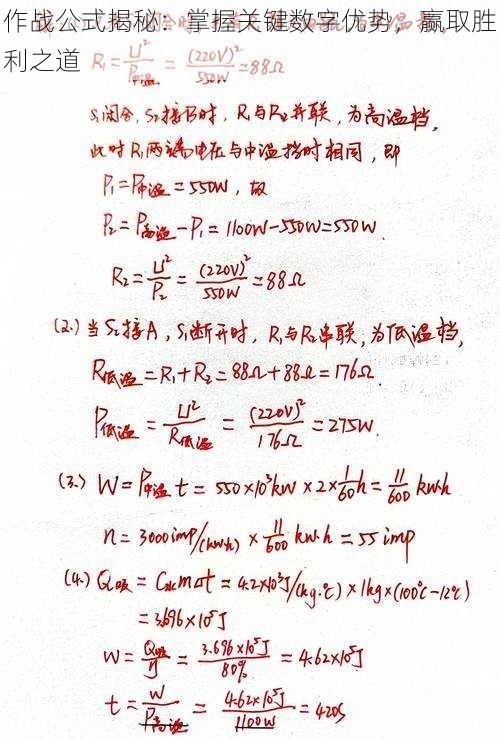 作战公式揭秘：掌握关键数字优势，赢取胜
利之道
R₁=U²/P中温 = (220V)²/550W =88Ω
S₁闭合，S₂接B时，R₁与R₂并联，为高温档，
此时R₁两端电压与中温挡时相同，即
P₁=P中温=550W，故
P₂=P高温-P₁=1100W-550W=550W.
R₂=U²/P₂=(220V)²/550W=88Ω
(2.)当S₂接A，S₁断开时，R₁与R₂串联，为低温档，
R低温=R₁+R₂=88Ω+88Ω=176Ω.
P低温=U²/R低温=(220V)²/176Ω=275W.
(3.) W=P中温t=550×10³kw×2×1/60h=11/600 kw·h
n=3000imp/(kw·h)×11/600 kw·h=55imp
(4.) Q吸=C水m△t=4.2×10³J/(kg·℃)×1kg×(100℃-12℃)
=3.696×10⁵J
W=Q吸/η=3.696×10⁵J/80%=4.62×10⁵J
t=W/P高温=4.62×10⁵J/1100W=420S